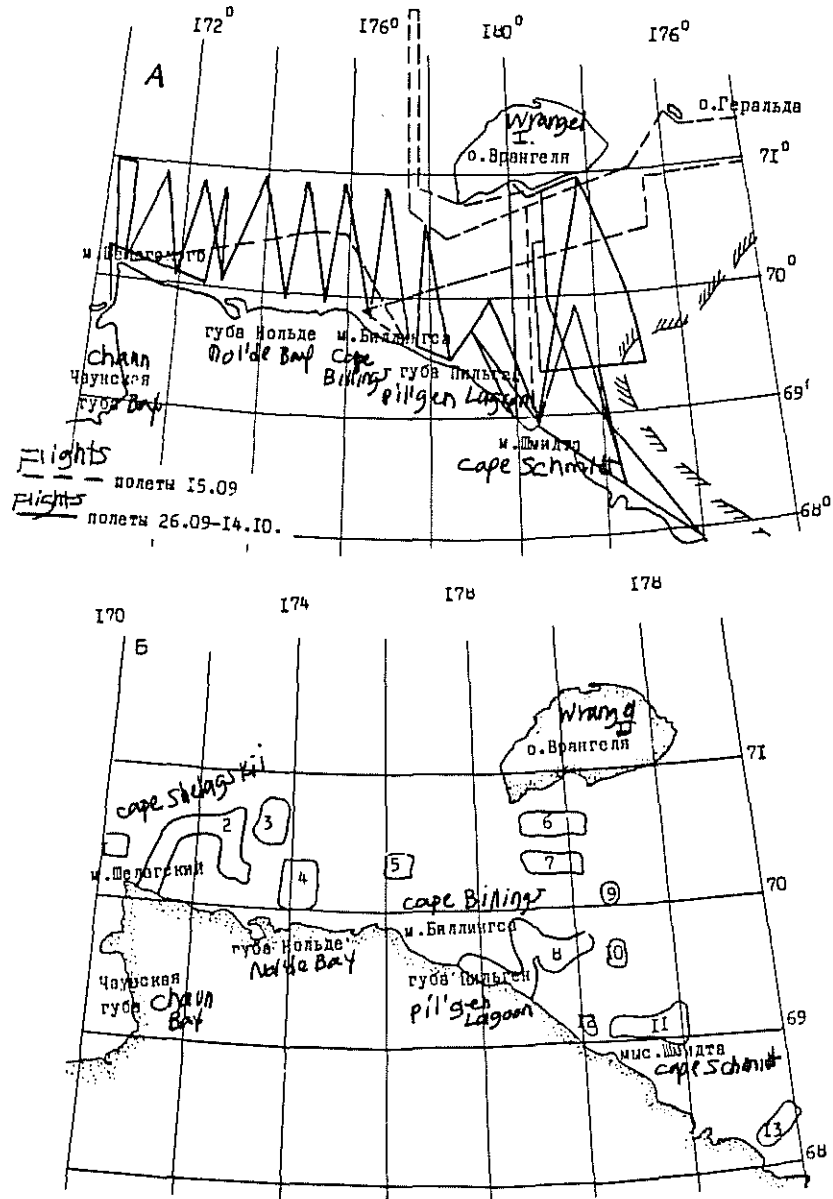 172° 176° 180° 176°
А
о.Геральда
Wrangel
I.
о.Врангеля
71°
м.Шелагского
70°
губа Нольде м.Биллингса
Nol'de Bay Cape
Billings губа Пильген
Chaun
Чаунская
губа Bay
pil'gen Lagoon
69°
м.Шмидта
Cape Schmidt
Flights
полеты 15.09
Flights
полеты 26.09-14.10.
68°
170 174 178 178
Б
Wrangel
о.Врангеля
71
cape Shelagskii
2 3
6
1
м.Шелагский
4
5
7
70
cape Billings
9
м.Биллингса
губа Нольде
Nol'de Bay
8
10
Чаунская
губа Chaun
Bay
губа Пильген
pil'gen
Lagoon
12
11
69
мыс.Шмидта
Cape Schmidt
13
68